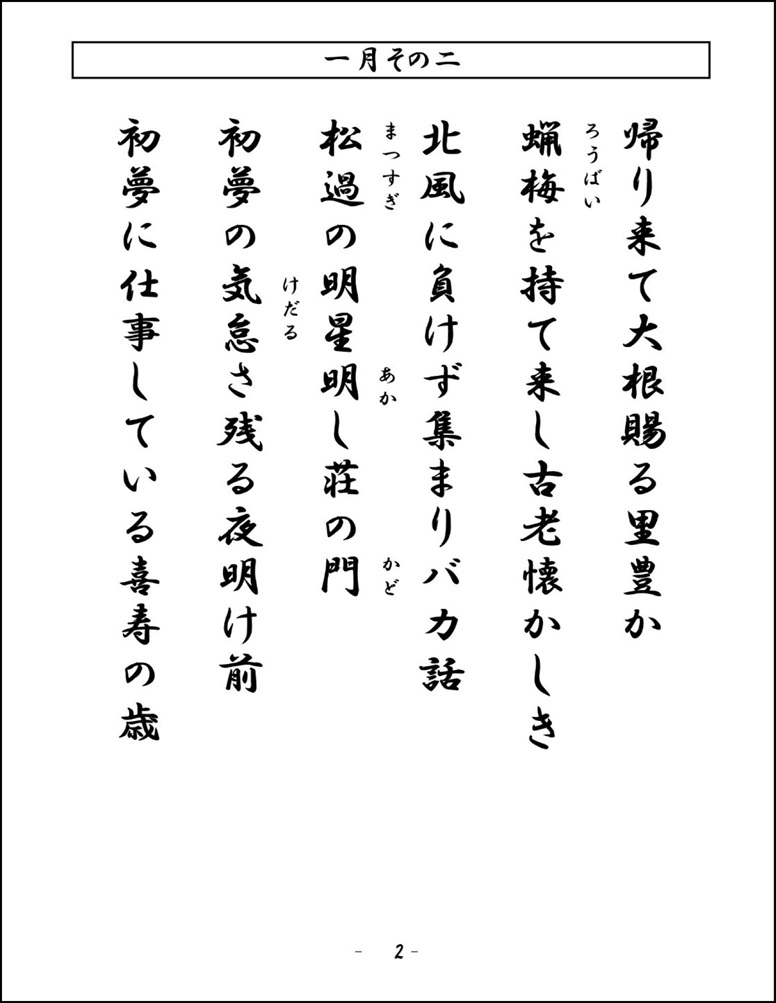 一月その二
帰り来て大根賜る里豊か
ろうばい
蝋梅を持て来し古老懐かしき
北風に負けず集まりバカ話
まつすぎ あか かど
松過の明星明し荘の門
けだる
初夢の気怠さ残る夜明け前
初夢に仕事している喜寿の歳
- 2 -